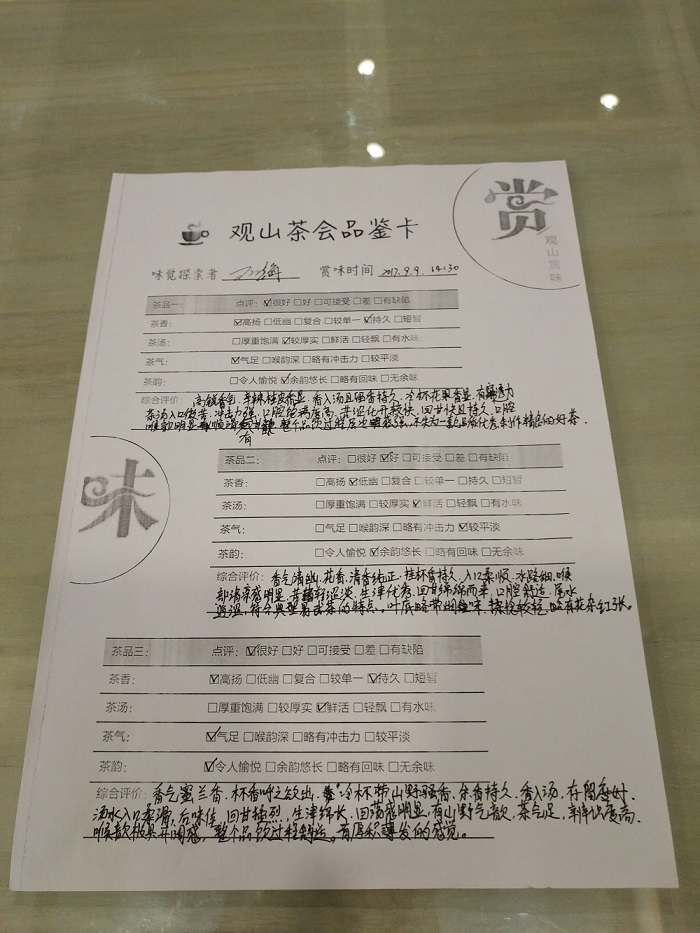 赏
观山赏味
观山茶会品鉴卡
味觉探索者 赏味时间 2017.9.9. 14:30
茶品一: 点评: ☑很好 □好 □可接受 □差 □有缺陷
茶香: ☑高扬 □低幽 □复合 □较单一 ☑持久 □短暂
茶汤: □厚重饱满 ☑较厚实 □鲜活 □轻飘 □有水味
茶气: ☑气足 □喉韵深 □略有冲击力 □较平淡
茶韵: □令人愉悦 ☑余韵悠长 □略有回味 □无余味
综合评价: 高锐香气, 辛辣桂皮香显, 香入汤且留香持久, 冷杯花果香显, 有穿透力
茶汤入口微苦, 冲击力强, 口腔饱满度高, 苦涩化开较快, 回甘快且持久, 口腔
喉韵明显 有 整个品饮过程层次感较强, 不失为一款品质优秀制作精良的好茶.
味
茶品二: 点评: □很好 ☑好 □可接受 □差 □有缺陷
茶香: □高扬 ☑低幽 □复合 □较单一 □持久 □短暂
茶汤: □厚重饱满 □较厚实 ☑鲜活 □轻飘 □有水味
茶气: □气足 □喉韵深 □略有冲击力 ☑较平淡
茶韵: □令人愉悦 ☑余韵悠长 □略有回味 □无余味
综合评价: 香气清幽, 花香, 清香纯正, 挂杯香持久, 入口柔顺, 水路细, 喉
部清凉感明显, 苦 涩淡, 生津优秀, 回甘绵绵而来, 口腔舒适, 尾水
符合典型易武茶的特点. 叶底略带烟 味, 揉捻较轻, 略有花杂红张.
茶品三: 点评: ☑很好 □好 □可接受 □差 □有缺陷
茶香: ☑高扬 □低幽 □复合 □较单一 ☑持久 □短暂
茶汤: □厚重饱满 □较厚实 ☑鲜活 □轻飘 □有水味
茶气: ☑气足 □喉韵深 □略有冲击力 □较平淡
茶韵: ☑令人愉悦 □余韵悠长 □略有回味 □无余味
综合评价: 香气蜜兰香, 杯香呼之欲出, 冷杯带山野强香, 杂香持久, 香入汤, 存留度好.
汤水入口柔滑, 后味佳, 回甘猛烈, 生津绵长, 回荡感明显, 有山野气韵, 茶气足, 辨识度高.
喉韵极具开阔感, 整个品饮过程舒适, 有厚积薄发的感觉。